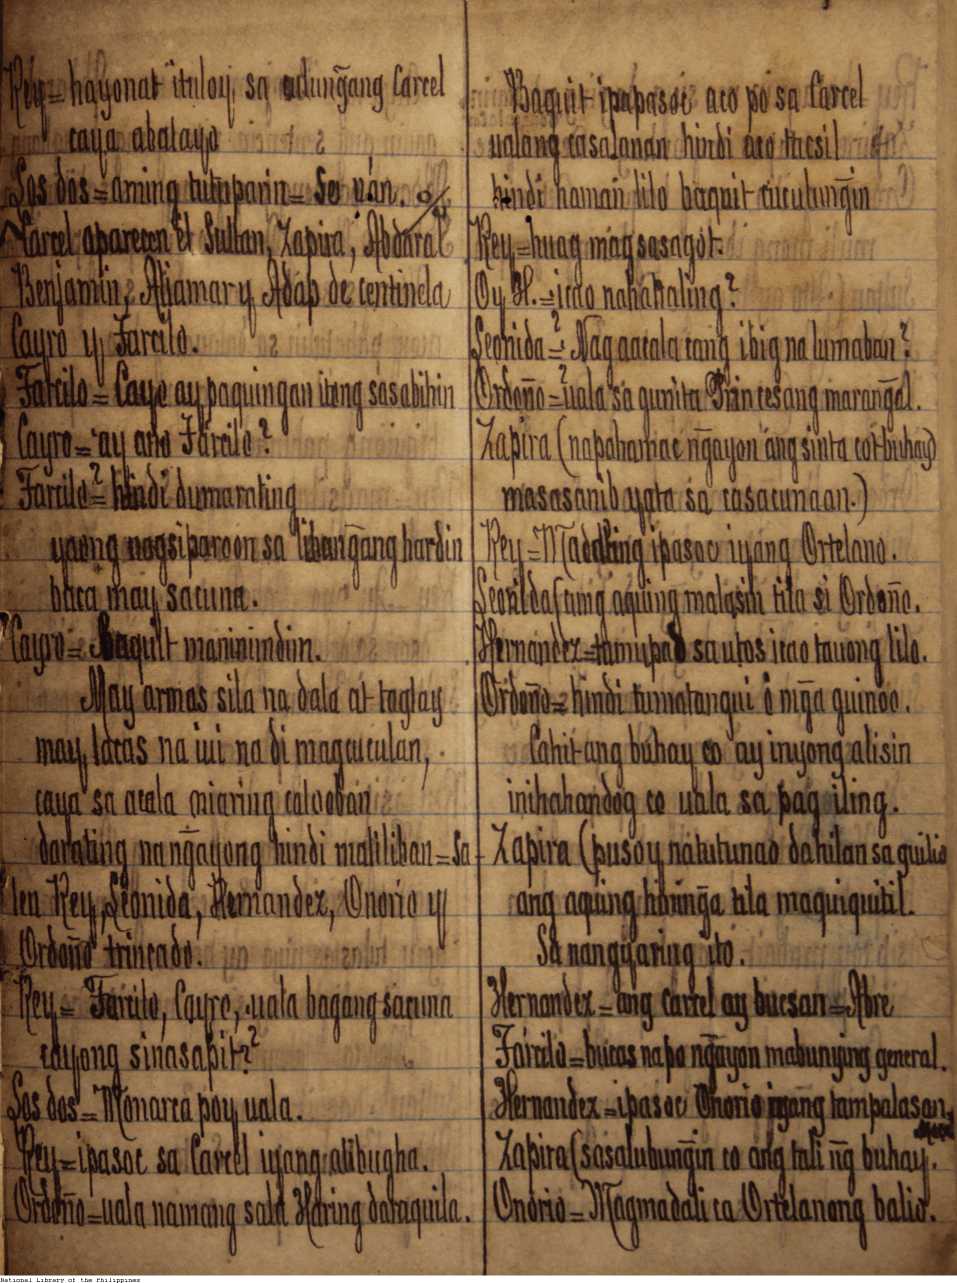 Rey = hayonat ituloy, sa adung̃ang Carcel
caya abalayo
Los dos = aming tutuparin = Se ván.
Carcel aparecen el Sultan, Zapira, Abdaral
Benjamin, Aljamar y Adap de centinela
Cayro y Farcilo.
Farcilo = Cayo ay paquingan itong sasabihin
Cayro = ay ano Farcilo?
Farcilo = hindi dumarating
yaong nagsiparoon sa libang̃ang hardin
baca may sacuna.
Cayro = Baquit maninindim.
May armas sila na dala at taglay
may lacas na iui na di magcuculan,
caya sa acala niaring calooban
darating na ng̃ayong hindi maliliban = Sa-
len Rey, Leonida, Hernandez, Onorio y
Ordoño trincado.
Rey = Farcilo, Cayro, uala bagang sacuna
cayong sinasapit?
Los dos = Monarca poy uala.
Rey = ipasoc sa Carcel iyang alibugha.
Ordoño = uala namang sala Haring dacaquila.
Baquit ipapasoc aco po sa Carcel
ualang casalanan hindi aco tacsil
hindi naman lilo baquit cuculung̃in
Rey = huag mag sasagot.
Oy H. = icao nahahaling?
Leonida = Nag aacala cang ibig na lumaban?
Ordoño = uala sa gunita Princesang marang̃al.
Zapira (napahamac ng̃ayon ang sinta co't buhay)
masasanib yata sa casacunaan.)
Rey = Madaling ipasoc iyang Ortelano.
Leonida (ang aquing malasin tila si Ordoño.
Hernandez = tumupad sa utos icao tauong lilo.
Ordoño = hindi tumatangui ó mg̃a guinoo.
Cahit ang buhay co ay inyong alisin
inihahandog co uala sa pag iling.
Zapira (pusoy natutunao dahilan sa guilio
ang aquing hining̃a tila maquiquitil.
Sa nangyaring ito.
Hernandez = ang carcel ay bucsan = Abre
Farcilo = bucas na po ng̃ayon mabunying general.
Hernandez = ipasoc Onorio iyang tampalasan,
Zapira (sasalubung̃in co ang tali ng̃ buhay.
Onorio = Magmadali ca Ortelanong balio.
National Library of the Philippines